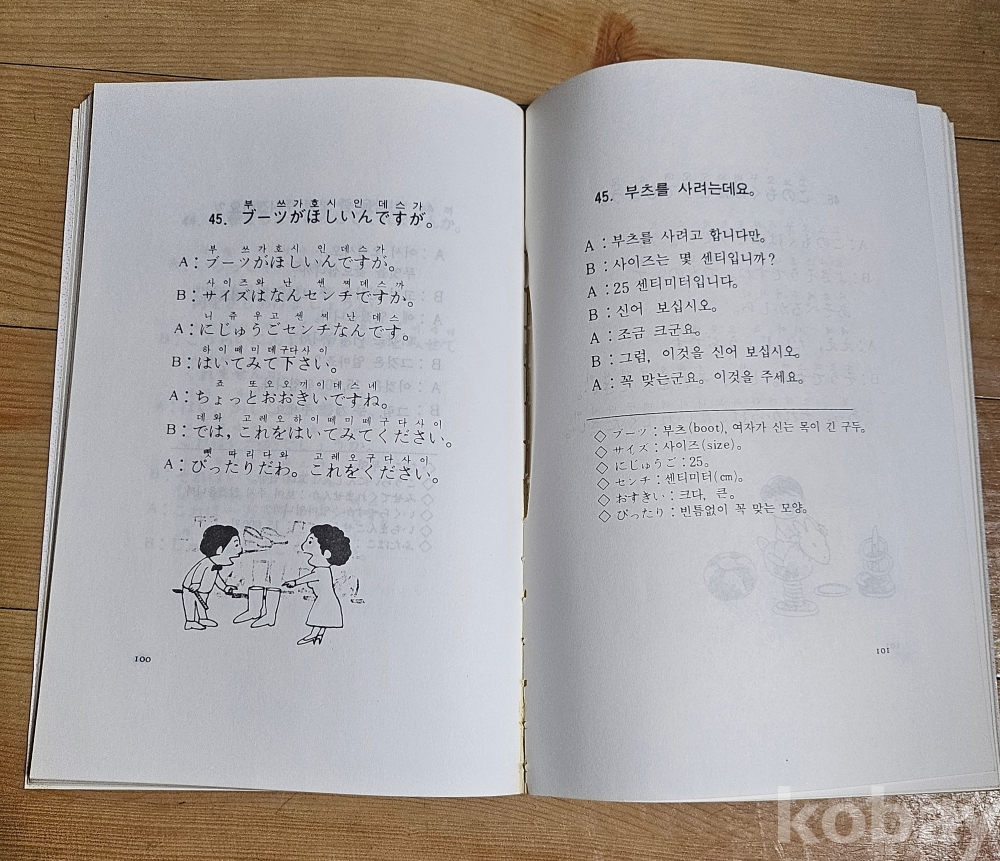 부 쓰가호시 인 데스가
45. ブーツがほしいんですが。
부 쓰가호시 인데스가
A：ブーツがほしいんですが。
사이즈와 난 센 찌데스까
B：サイズはなんセンチですか。
니 쥬 우고 센 찌 난 데스
A：にじゅうごセンチなんです。
하이떼미 데구다사 이
B：はいてみて下さい。
쬬 또오오끼이데스네
A：ちょっとおおきいですね。
데와 고레오하이떼미떼구다사 이
B：では，これをはいてみてください。
삣 따리다와 고레오구다사이
A：ぴったりだわ。これをください。
100
45. 부츠를 사려는데요。
A：부츠를 사려고 합니다만。
B：사이즈는 몇 센티입니까?
A：25 센티미터입니다。
B：신어 보십시오。
A：조금 크군요。
B：그럼, 이것을 신어 보십시오。
A：꼭 맞는군요。이것을 주세요。
◇ ブーツ：부츠(boot), 여자가 신는 목이 긴 구두。
◇ サイズ：사이즈(size)。
◇ にじゅうご：25。
◇ センチ：센티미터(cm)。
◇ おすきい：크다, 큰。
◇ ぴったり：빈틈없이 꼭 맞는 모양。
101
kobay